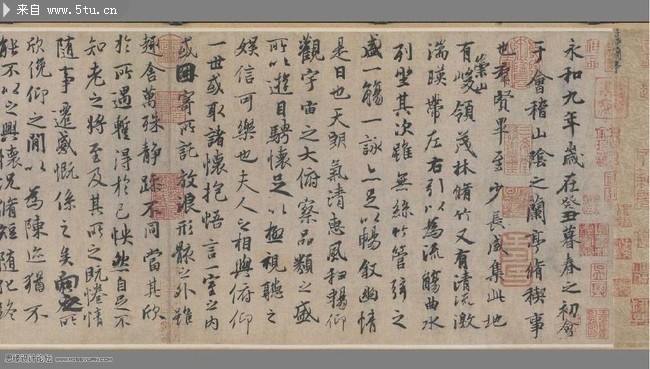 来自 www.5tu.cn
永和九年歲在癸丑暮春之初會
于會稽山陰之蘭亭脩稧事
也群賢畢至少長咸集此地
有崇山峻領茂林脩竹又有清流激
湍暎帶左右引以為流觴曲水
列坐其次雖無絲竹管弦之
盛一觴一詠亦足以暢敘幽情
是日也天朗氣清惠風和暢仰
觀宇宙之大俯察品類之盛
所以遊目騁懷足以極視聽之
娛信可樂也夫人之相與俯仰
一世或取諸懷抱悟言一室之內
或因寄所託放浪形骸之外雖
趣舍萬殊靜躁不同當其欣
於所遇蹔得於己怏然自足不
知老之將至及其所之既惓情
隨事遷感慨係之矣向之所
欣俛仰之閒以為陳迹猶不
能不以之興懷況脩短隨化終
思缘设计论坛 WWW.MISSYUAN.COM